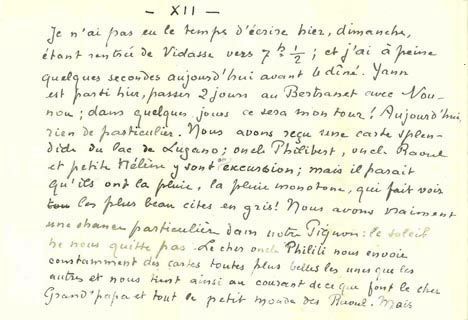 - XII -
Je n'ai pas eu le temps d'écrire hier, dimanche,
étant rentrée de Vidasse vers 7 h. 1/2 ; et j'ai à peine
quelques secondes aujourd'hui avant le dîné. Yann
est parti hier, passer 2 jours au Bertranet avec Nou-
nou ; dans quelques jours ce sera mon tour ! Aujourd'hui
rien de particulier. Nous avons reçu une carte splen-
dide du lac de Lugano ; oncle Philibert, oncle Raoul
et petite Hélène y sont en excursion ; mais il parait
qu'ils ont la pluie, la pluie monotone, qui fait voir
les plus beau cites en gris ! Nous avons vraiment
une chance particulière dans notre Pignon : le soleil
ne nous quitte pas. Le cher oncle Philili nous envoie
constamment des cartes toutes plus belles les unes que les
autres et nous tient ainsi au courant de ce que font le cher
Grand-papa et tout le petit monde des Raoul. Mais